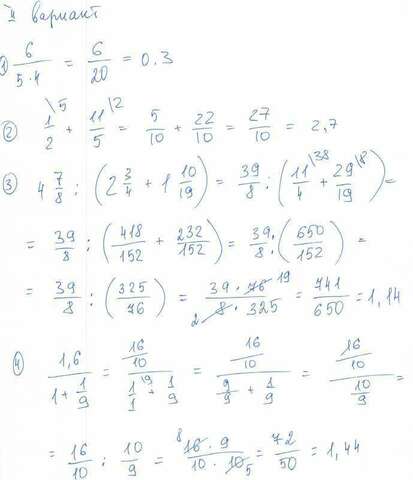 II вариант
① 6/(5·4) = 6/20 = 0.3
② 1/2 \5 + 11/5 \2 = 5/10 + 22/10 = 27/10 = 2,7
③ 4 7/8 : (2 3/4 + 1 10/19) = 39/8 : (11/4 \38 + 29/19 \8) =
= 39/8 : (418/152 + 232/152) = 39/8 : (650/152) =
= 39/8 : (325/76) = (39 · 76 19)/(2 8 · 325) = 741/650 = 1,14
④ 1,6/(1 + 1/9) = (16/10)/(1/1 \9 + 1/9) = (16/10)/(9/9 + 1/9) = (16/10)/(10/9) =
= 16/10 : 10/9 = (8 16 · 9)/(10 · 10 5) = 72/50 = 1,44